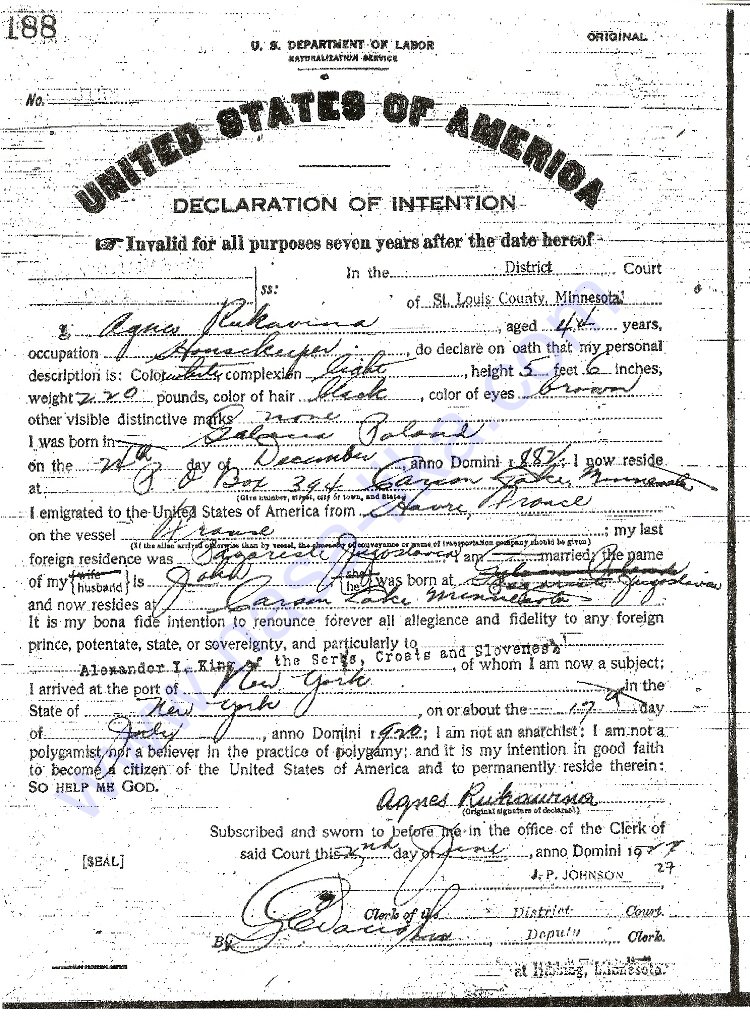 188
U. S. DEPARTMENT OF LABOR
NATURALIZATION SERVICE
ORIGINAL
No.
UNITED STATES OF AMERICA
DECLARATION OF INTENTION
☞ Invalid for all purposes seven years after the date hereof
In the District Court
ss:
of St. Louis County, Minnesota.
I, Agnes Rukavina, aged 44 years,
occupation Housekeeper, do declare on oath that my personal
description is: Color white, complexion light, height 5 feet 6 inches,
weight 220 pounds, color of hair black, color of eyes brown
other visible distinctive marks none
I was born in Poland
on the 24th day of December, anno Domini 1882; I now reside
at P O Box 394 Carson Lake, Minnesota
(Give number, street, city or town, and State)
I emigrated to the United States of America from Havre France
on the vessel; my last
(If the alien arrived otherwise than by vessel, the character of conveyance or name of transportation company should be given)
foreign residence was Jugoslavia; I am married; the name
of my wife husband is John; she he was born at Jugoslavia
and now resides at Carson Lake Minnesota
It is my bona fide intention to renounce forever all allegiance and fidelity to any foreign
prince, potentate, state, or sovereignty, and particularly to
Alexander I, King of the Serbs, Croats and Slovenes, of whom I am now a subject;
I arrived at the port of New York, in the
State of New York, on or about the 17th day
of July, anno Domini 1920; I am not an anarchist; I am not a
polygamist nor a believer in the practice of polygamy; and it is my intention in good faith
to become a citizen of the United States of America and to permanently reside therein:
SO HELP ME GOD.
Agnes Rukawina
(Original signature of declarant)
Subscribed and sworn to before me in the office of the Clerk of
said Court this 2nd day of June, anno Domini 1927
27
[SEAL]
J. P. JOHNSON
Clerk of the District Court.
By Deputy Clerk.
at Hibbing, Minnesota.